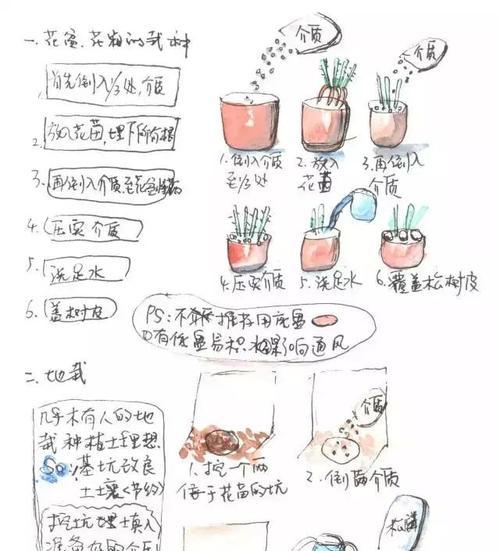 一、花盆、花箱的栽种
首先倒入1/3处,介质
2.放入花苗,埋下所有根
3.再倒入介质至花盆
4.压实介质
5.浇足水
6.盖树皮
介质
介质
1.倒介质
至1/3处
2.放入
花苗
3.再倒入
介质
4.压实介质
5.浇足水
6.覆盖松树皮
PS:不推荐用底盘
有底盘易积水影响通风
二、地栽
几乎木有人的地
栽种植土理想
So,基坑改良
土壤<节约>
挖坑埋土填入
准备好的介质
1.挖一个两
倍于花苗的坑
介质
2.倒入介质
松鳞